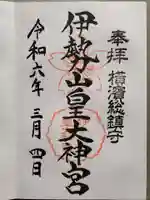 奉拝 横濱総鎮守
伊勢山皇大神宮
令和六年三月四日